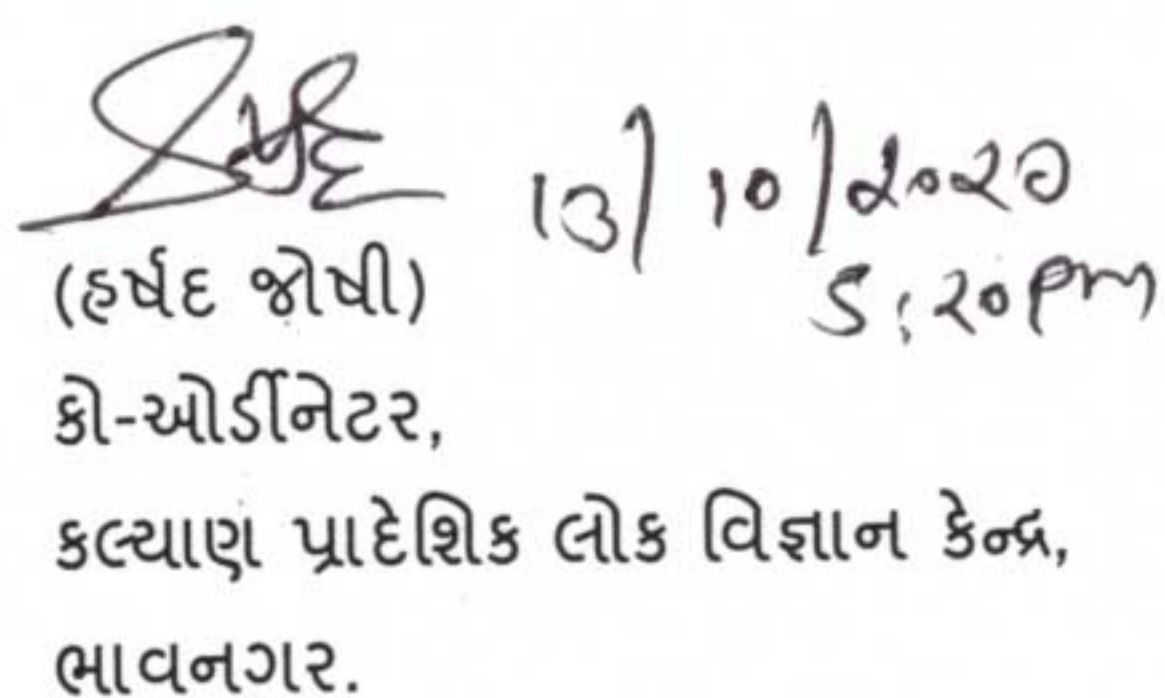 13/10/૨૦૨૦
5:૨૦ pm
(હર્ષદ જોષી)
કો-ઓર્ડીનેટર,
કલ્યાણ પ્રાદેશિક લોક વિજ્ઞાન કેન્દ્ર,
ભાવનગર.